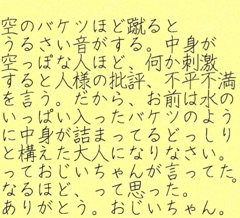 空のバケツほど蹴ると
うるさい音がする。中身が
空っぽな人ほど、何か刺激
すると人様の批評、不平不満
を言う。だから、お前は水の
いっぱい入ったバケツのよう
に中身が詰まってるどっしり
と構えた大人になりなさい。
っておじいちゃんが言ってた。
なるほど、って思った。
ありがとう。おじいちゃん。